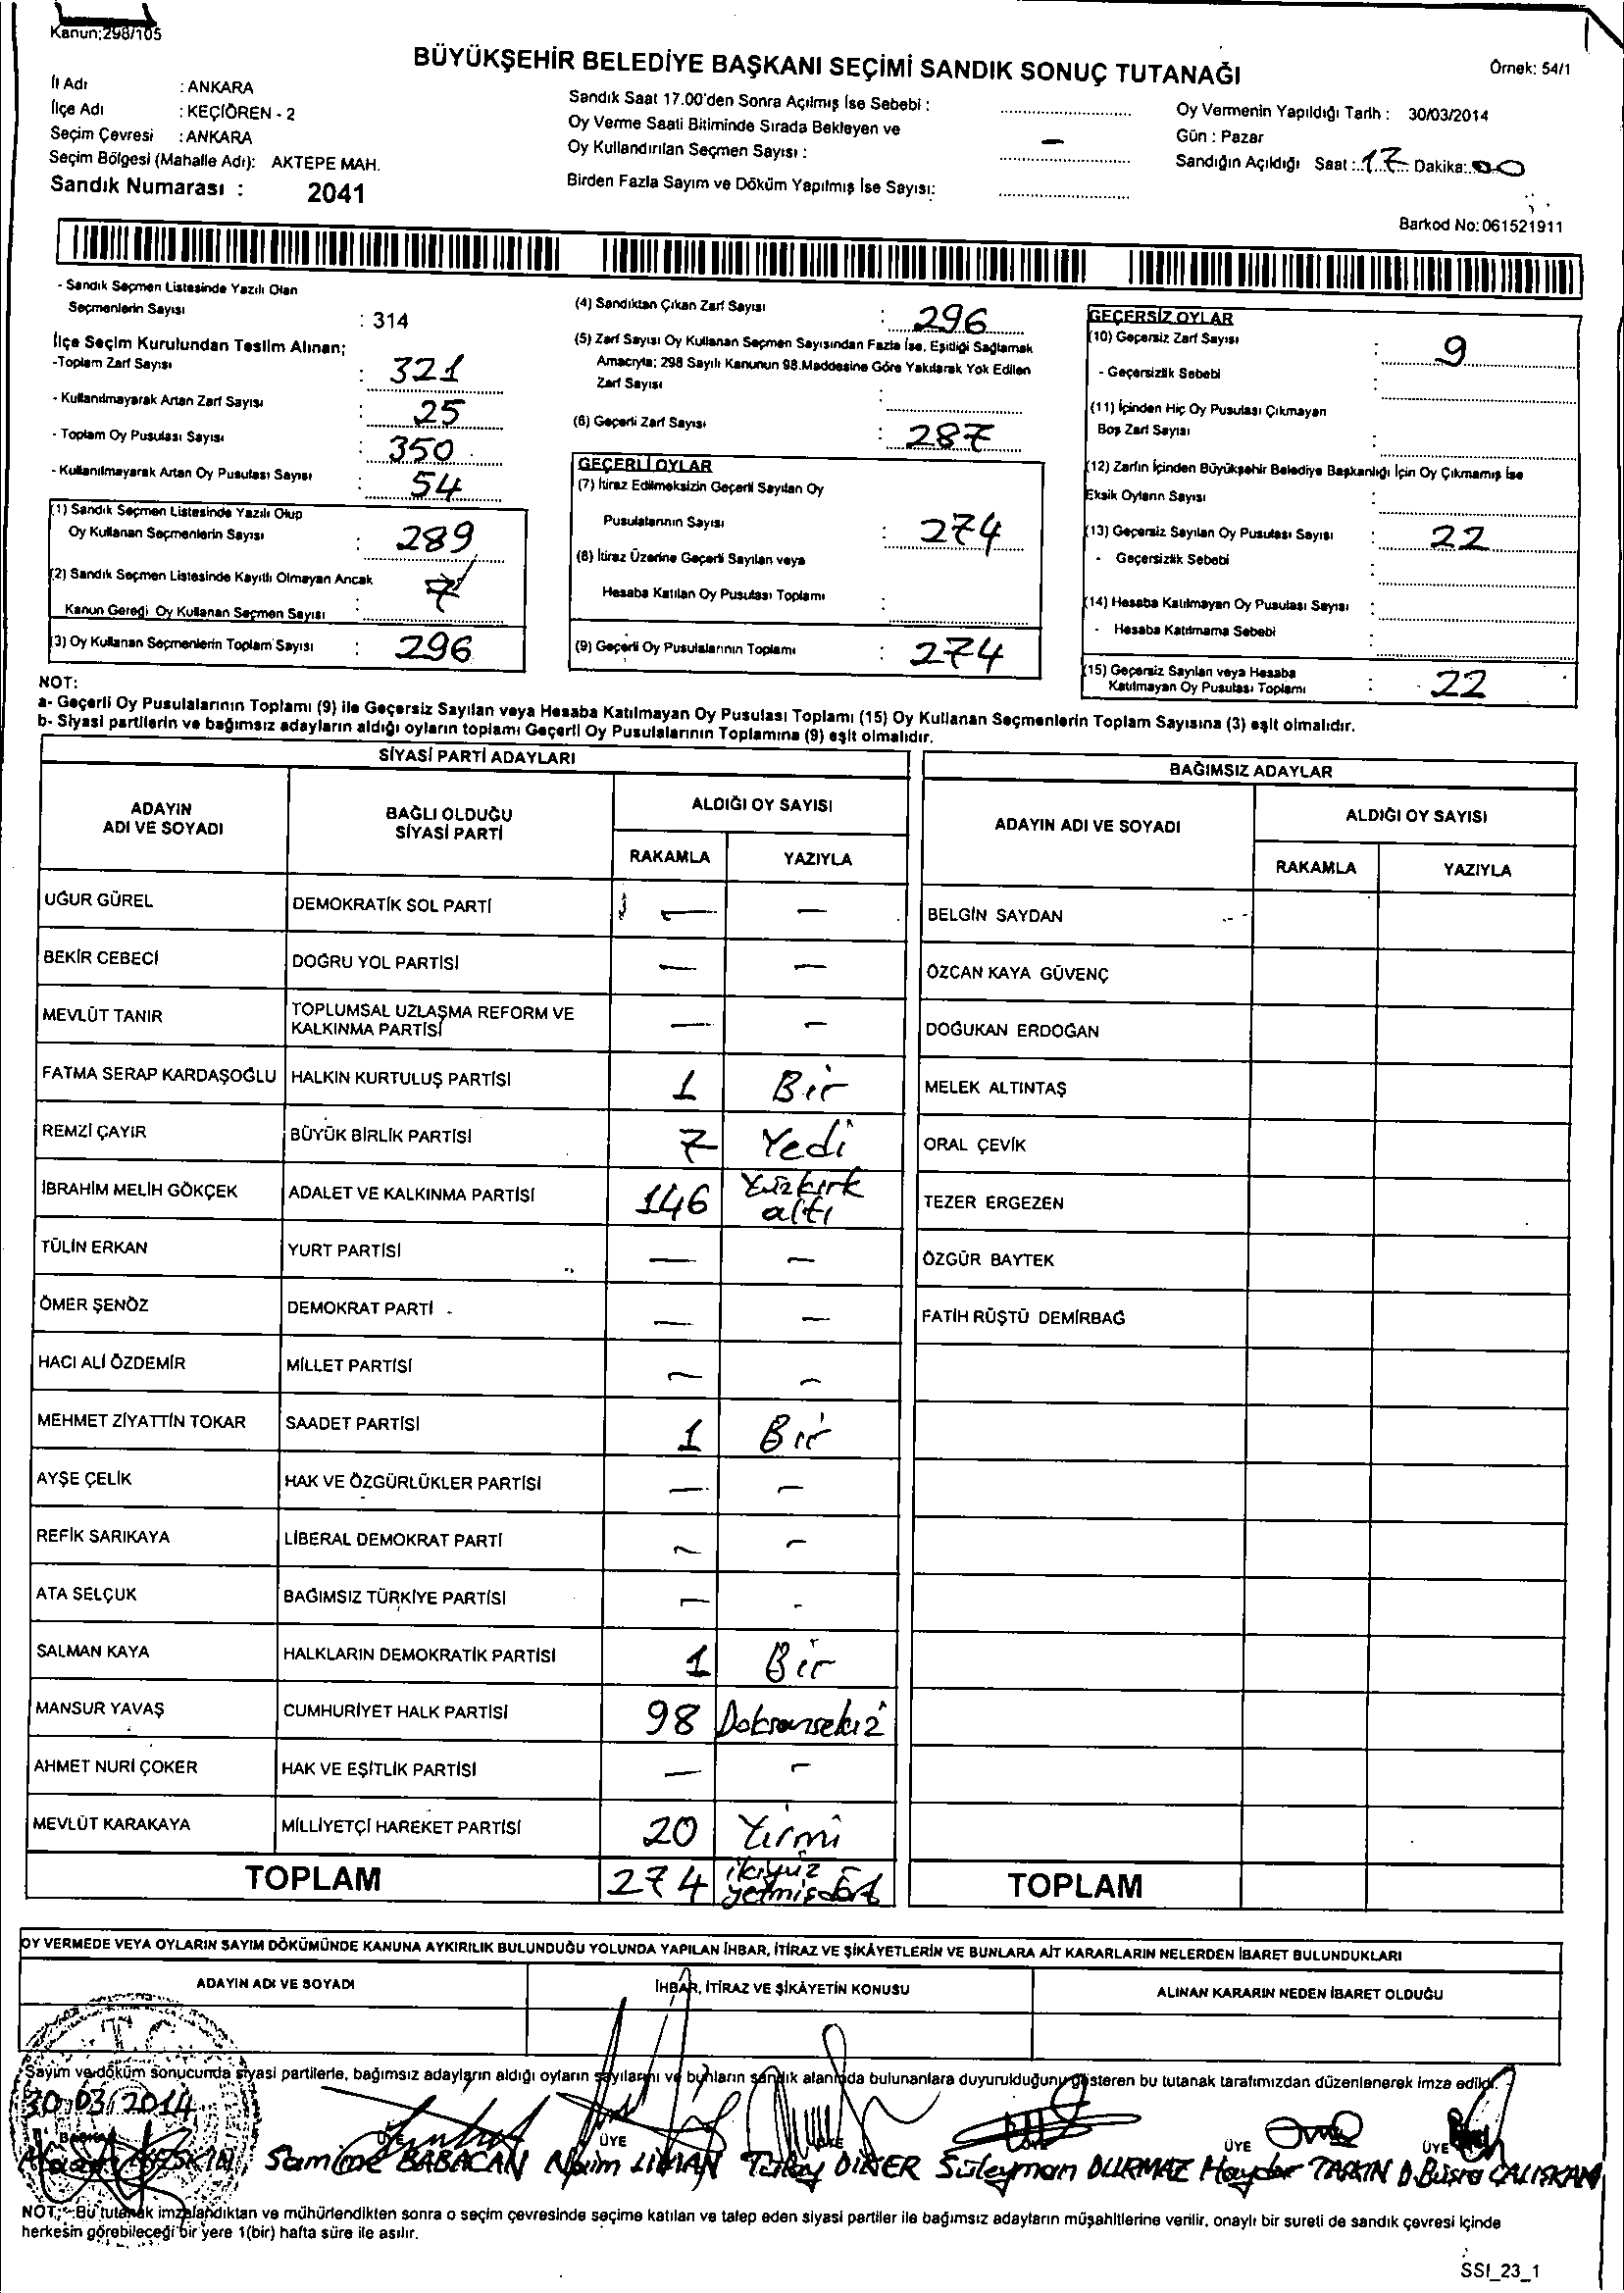 Kanun;298/105
BÜYÜKŞEHİR BELEDİYE BAŞKANI SEÇİMİ SANDIK SONUÇ TUTANAĞI
Örnek: 54/1
İl Adı : ANKARA
İlçe Adı : KEÇİÖREN - 2
Seçim Çevresi : ANKARA
Seçim Bölgesi (Mahalle Adı): AKTEPE MAH.
Sandık Numarası : 2041
Sandık Saat 17.00'den Sonra Açılmış İse Sebebi :
Oy Verme Saati Bitiminde Sırada Bekleyen ve
Oy Kullandırılan Seçmen Sayısı : —
Birden Fazla Sayım ve Döküm Yapılmış İse Sayısı:
Oy Vermenin Yapıldığı Tarih : 30/03/2014
Gün : Pazar
Sandığın Açıldığı Saat : 17 Dakika: 00
Barkod No: 061521911
- Sandık Seçmen Listesinde Yazılı Olan
Seçmenlerin Sayısı : 314
İlçe Seçim Kurulundan Teslim Alınan;
-Toplam Zarf Sayısı : 321
- Kullanılmayarak Artan Zarf Sayısı : 25
- Toplam Oy Pusulası Sayısı : 350
- Kullanılmayarak Artan Oy Pusulası Sayısı : 54
(1) Sandık Seçmen Listesinde Yazılı Olup
Oy Kullanan Seçmenlerin Sayısı : 289
(2) Sandık Seçmen Listesinde Kayıtlı Olmayan Ancak
Kanun Gereği Oy Kullanan Seçmen Sayısı : 7
(3) Oy Kullanan Seçmenlerin Toplam Sayısı : 296
(4) Sandıktan Çıkan Zarf Sayısı : 296
(5) Zarf Sayısı Oy Kullanan Seçmen Sayısından Fazla İse, Eşitliği Sağlamak
Amacıyla; 298 Sayılı Kanunun 98.Maddesine Göre Yakılarak Yok Edilen
Zarf Sayısı :
(6) Geçerli Zarf Sayısı : 287
GEÇERLİ OYLAR
(7) İtiraz Edilmeksizin Geçerli Sayılan Oy
Pusulalarının Sayısı : 274
(8) İtiraz Üzerine Geçerli Sayılan veya
Hesaba Katılan Oy Pusulası Toplamı :
(9) Geçerli Oy Pusulalarının Toplamı : 274
GEÇERSİZ OYLAR
(10) Geçersiz Zarf Sayısı : 9
- Geçersizlik Sebebi :
(11) İçinden Hiç Oy Pusulası Çıkmayan
Boş Zarf Sayısı :
(12) Zarfın İçinden Büyükşehir Belediye Başkanlığı İçin Oy Çıkmamış İse
Eksik Oyların Sayısı :
(13) Geçersiz Sayılan Oy Pusulası Sayısı : 22
- Geçersizlik Sebebi :
(14) Hesaba Katılmayan Oy Pusulası Sayısı :
- Hesaba Katılmama Sebebi :
(15) Geçersiz Sayılan veya Hesaba
Katılmayan Oy Pusulası Toplamı : 22
NOT:
a- Geçerli Oy Pusulalarının Toplamı (9) ile Geçersiz Sayılan veya Hesaba Katılmayan Oy Pusulası Toplamı (15) Oy Kullanan Seçmenlerin Toplam Sayısına (3) eşit olmalıdır.
b- Siyasi partilerin ve bağımsız adayların aldığı oyların toplamı Geçerli Oy Pusulalarının Toplamına (9) eşit olmalıdır.
SİYASİ PARTİ ADAYLARI
ADAYIN ADI VE SOYADI BAĞLI OLDUĞU SİYASİ PARTİ ALDIĞI OY SAYISI
RAKAMLA YAZIYLA
UĞUR GÜREL DEMOKRATİK SOL PARTİ — —
BEKİR CEBECİ DOĞRU YOL PARTİSİ — —
MEVLÜT TANIR TOPLUMSAL UZLAŞMA REFORM VE KALKINMA PARTİSİ — —
FATMA SERAP KARDAŞOĞLU HALKIN KURTULUŞ PARTİSİ 1 Bir
REMZİ ÇAYIR BÜYÜK BİRLİK PARTİSİ 7 Yedi
İBRAHİM MELİH GÖKÇEK ADALET VE KALKINMA PARTİSİ 146 Yüzkırk altı
TÜLİN ERKAN YURT PARTİSİ — —
ÖMER ŞENÖZ DEMOKRAT PARTİ — —
HACI ALİ ÖZDEMİR MİLLET PARTİSİ — —
MEHMET ZİYATTİN TOKAR SAADET PARTİSİ 1 Bir
AYŞE ÇELİK HAK VE ÖZGÜRLÜKLER PARTİSİ — —
REFİK SARIKAYA LİBERAL DEMOKRAT PARTİ — —
ATA SELÇUK BAĞIMSIZ TÜRKİYE PARTİSİ — -
SALMAN KAYA HALKLARIN DEMOKRATİK PARTİSİ 1 Bir
MANSUR YAVAŞ CUMHURİYET HALK PARTİSİ 98 Doksansekiz
AHMET NURİ ÇOKER HAK VE EŞİTLİK PARTİSİ — —
MEVLÜT KARAKAYA MİLLİYETÇİ HAREKET PARTİSİ 20 Yirmi
TOPLAM 274 ikiyüz yetmişdört
BAĞIMSIZ ADAYLAR
ADAYIN ADI VE SOYADI ALDIĞI OY SAYISI
RAKAMLA YAZIYLA
BELGİN SAYDAN
ÖZCAN KAYA GÜVENÇ
DOĞUKAN ERDOĞAN
MELEK ALTINTAŞ
ORAL ÇEVİK
TEZER ERGEZEN
ÖZGÜR BAYTEK
FATİH RÜŞTÜ DEMİRBAĞ
TOPLAM
OY VERMEDE VEYA OYLARIN SAYIM DÖKÜMÜNDE KANUNA AYKIRILIK BULUNDUĞU YOLUNDA YAPILAN İHBAR, İTİRAZ VE ŞİKÂYETLERİN VE BUNLARA AİT KARARLARIN NELERDEN İBARET BULUNDUKLARI
ADAYIN ADI VE SOYADI İHBAR, İTİRAZ VE ŞİKÂYETİN KONUSU ALINAN KARARIN NEDEN İBARET OLDUĞU
Sayım ve döküm sonucunda siyasi partilerle, bağımsız adayların aldığı oyların sayılarını ve bunların sandık alanında bulunanlara duyurulduğunu gösteren bu tutanak tarafımızdan düzenlenerek imza edildi.
30.03.2014
BAŞKAN ÜYE ÜYE ÜYE ÜYE
Samime BABACAN Naim LİMAN DİKER Süleyman DURMAZ Haydar TARKIN D.Büşra ÇALIŞKAN
NOT : Bu tutanak imzalandıktan ve mühürlendikten sonra o seçim çevresinde seçime katılan ve talep eden siyasi partiler ile bağımsız adayların müşahitlerine verilir, onaylı bir sureti de sandık çevresi içinde
herkesin görebileceği bir yere 1(bir) hafta süre ile asılır.
SSI_23_1